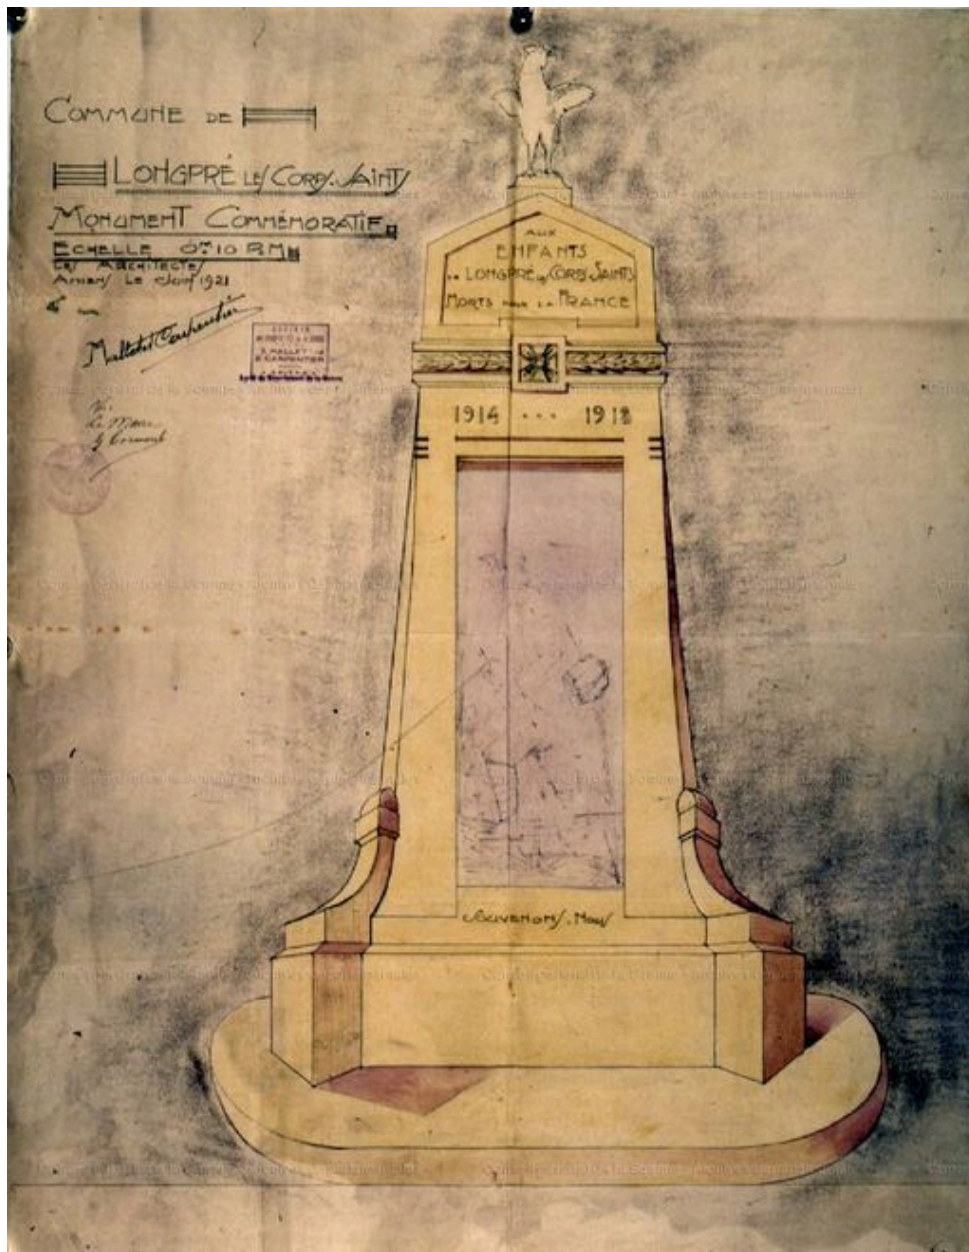 COMMUNE DE
LONGPRÉ LES CORPS. SAINTS
MONUMENT COMMÉMORATIF
ECHELLE 0m10 P.M
LES ARCHITECTES
AMIENS LE Juin 1921
Mallet et Carpentier
Vu
Le Maire
AUX
ENFANTS
DE LONGPRÉ LES CORPS SAINTS
MORTS POUR LA FRANCE
1914 ... 1918
SOUVENONS. NOUS